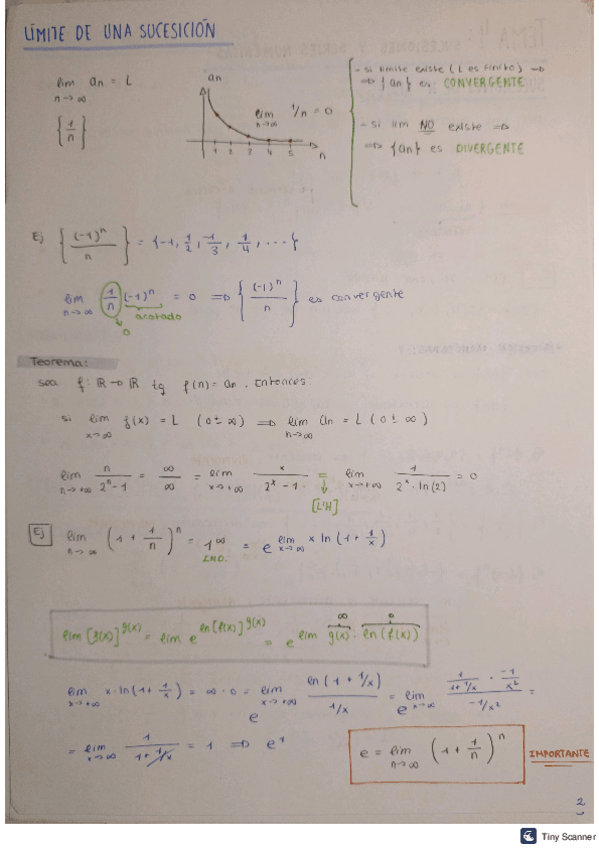 LÍMITE DE UNA SUCESIÓN
lim an = L
n→∞
{1/n}
an
lim 1/n = 0
n→∞
1 2 3 4 5 n
- si límite existe (L es finito) ⇒
⇒ {an} es CONVERGENTE
- si lim NO existe ⇒
⇒ {an} es DIVERGENTE
Ej {(-1)^n/n} = {-1, 1/2, -1/3, 1/4, ...}
lim 1/n (-1)^n = 0 ⇒ {(-1)^n/n} es convergente
n→∞
0 acotado
Teorema:
sea f: ℝ→ℝ tq f(n) = an. Entonces:
si lim f(x) = L (o ± ∞) ⇒ lim an = L (o ± ∞)
x→∞ n→∞
lim n/(2^n - 1) = ∞/∞ = lim x/(2^x - 1) = lim 1/(2^x · ln(2)) = 0
n→+∞ x→+∞ x→+∞
[L'H]
Ej lim (1 + 1/n)^n = 1^∞ = e^(lim x ln(1 + 1/x))
n→∞ IND. x→∞
lim [f(x)]^g(x) = lim e^(ln[f(x)]^g(x)) = e^(lim g(x) · ln(f(x)))
∞ 0
lim x·ln(1 + 1/x) = ∞·0 = e^(lim ln(1 + 1/x) / 1/x) = e^(lim (1/(1 + 1/x) · -1/x²) / -1/x²) =
x→+∞ x→+∞ x→∞
= lim 1/(1 + 1/x) = 1 ⇒ e^1
x→∞
e = lim (1 + 1/n)^n IMPORTANTE
n→∞
2
Tiny Scanner